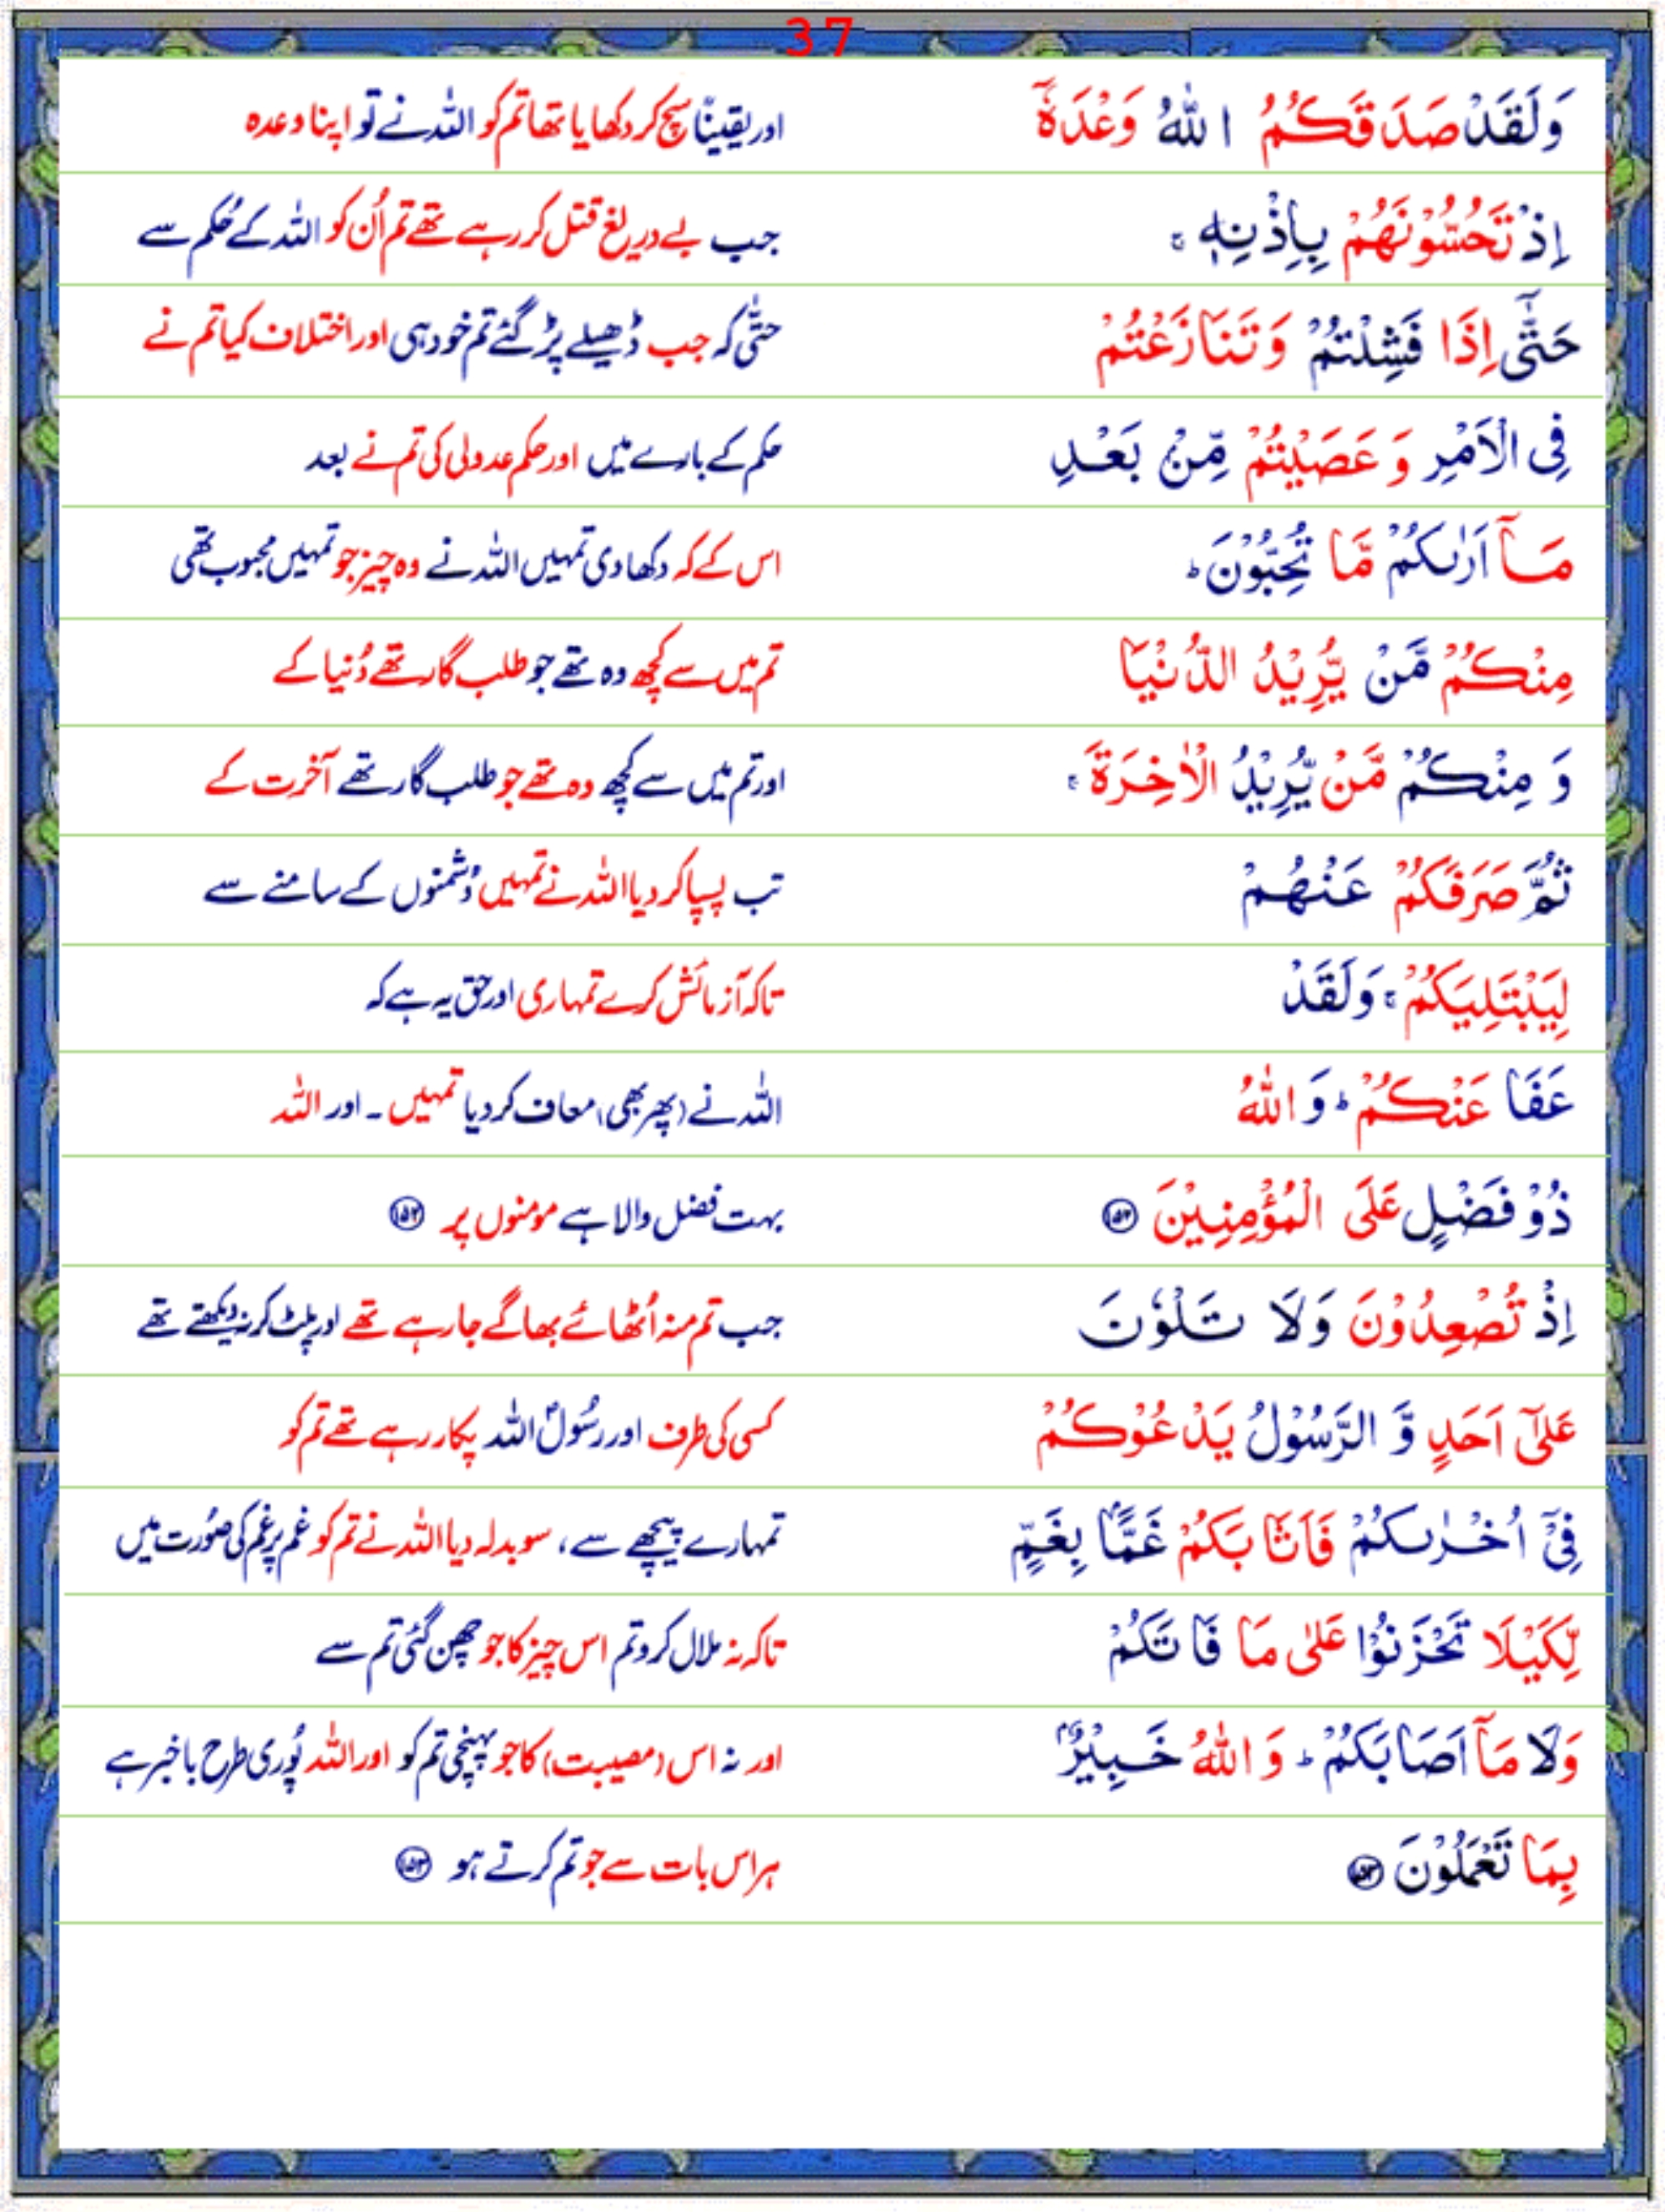 37
وَلَقَدْ صَدَقَكُمُ اللّٰهُ وَعْدَهٗۤ اور یقیناً سچ کر دکھایا تھا تم کو اللہ نے تو اپنا وعدہ
اِذْ تَحُسُّوْنَهُمْ بِاِذْنِهٖ ۚ جب بے دریغ قتل کر رہے تھے تم اُن کو اللہ کے حُکم سے
حَتّٰۤى اِذَا فَشِلْتُمْ وَتَنَازَعْتُمْ حتّٰی کہ جب ڈھیلے پڑ گئے تم خود ہی اور اختلاف کیا تم نے
فِى الْاَمْرِ وَ عَصَيْتُمْ مِّنْۢ بَعْدِ حکم کے بارے میں اور حکم عدولی کی تم نے بعد
مَاۤ اَرٰىكُمْ مَّا تُحِبُّوْنَ ؕ اس کے کہ دکھا دی تمہیں اللہ نے وہ چیز جو تمہیں محبوب تھی
مِنْكُمْ مَّنْ يُّرِيْدُ الدُّنْيَا تم میں سے کچھ وہ تھے جو طلب گار تھے دُنیا کے
وَ مِنْكُمْ مَّنْ يُّرِيْدُ الْاٰخِرَةَ ۚ اور تم میں سے کچھ وہ تھے جو طلب گار تھے آخرت کے
ثُمَّ صَرَفَكُمْ عَنْهُمْ تب پسپا کر دیا اللہ نے تمہیں دُشمنوں کے سامنے سے
لِيَبْتَلِيَكُمْ ۚ وَلَقَدْ تاکہ آزمائش کرے تمہاری اور حق یہ ہے کہ
عَفَا عَنْكُمْ ؕ وَ اللّٰهُ اللہ نے (پھر بھی) معاف کر دیا تمہیں ۔ اور اللہ
ذُوْ فَضْلٍ عَلَى الْمُؤْمِنِيْنَ ۝۱۵۲ بہت فضل والا ہے مومنوں پر ۝۱۵۲
اِذْ تُصْعِدُوْنَ وَلَا تَلْوٗنَ جب تم منہ اُٹھائے بھاگے جا رہے تھے اور پلٹ کر نہ دیکھتے تھے
عَلٰٓى اَحَدٍ وَّ الرَّسُوْلُ يَدْعُوْكُمْ کسی کی طرف اور رسُولؐ اللہ پکار رہے تھے تم کو
فِىْۤ اُخْرٰىكُمْ فَاَثَابَكُمْ غَمًّاۢ بِغَمٍّ تمہارے پیچھے سے، سو بدلہ دیا اللہ نے تم کو غم پر غم کی صُورت میں
لِّكَيْلَا تَحْزَنُوْا عَلٰى مَا فَاتَكُمْ تاکہ نہ ملال کرو تم اس چیز کا جو چھن گئی تم سے
وَلَا مَاۤ اَصَابَكُمْ ؕ وَ اللّٰهُ خَبِيْرٌۢ اور نہ اس (مصیبت) کا جو پہنچی تم کو اور اللہ پُوری طرح باخبر ہے
بِمَا تَعْمَلُوْنَ ۝۱۵۳ ہر اس بات سے جو تم کرتے ہو ۝۱۵۳